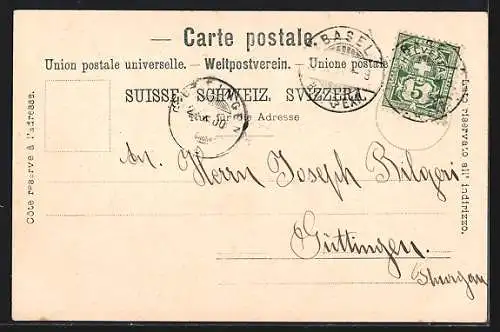 Carte postale.
Union postale universelle. – Weltpostverein. – Unione postale
SUISSE. SCHWEIZ. SVIZZERA.
Nur für die Adresse
BASEL
HELVETIA
5
Côté réservé à l'adresse.
Lato riservato all' indirizzo.
An. Herrn Joseph Bilgeri
Güttingen.
Thurgau